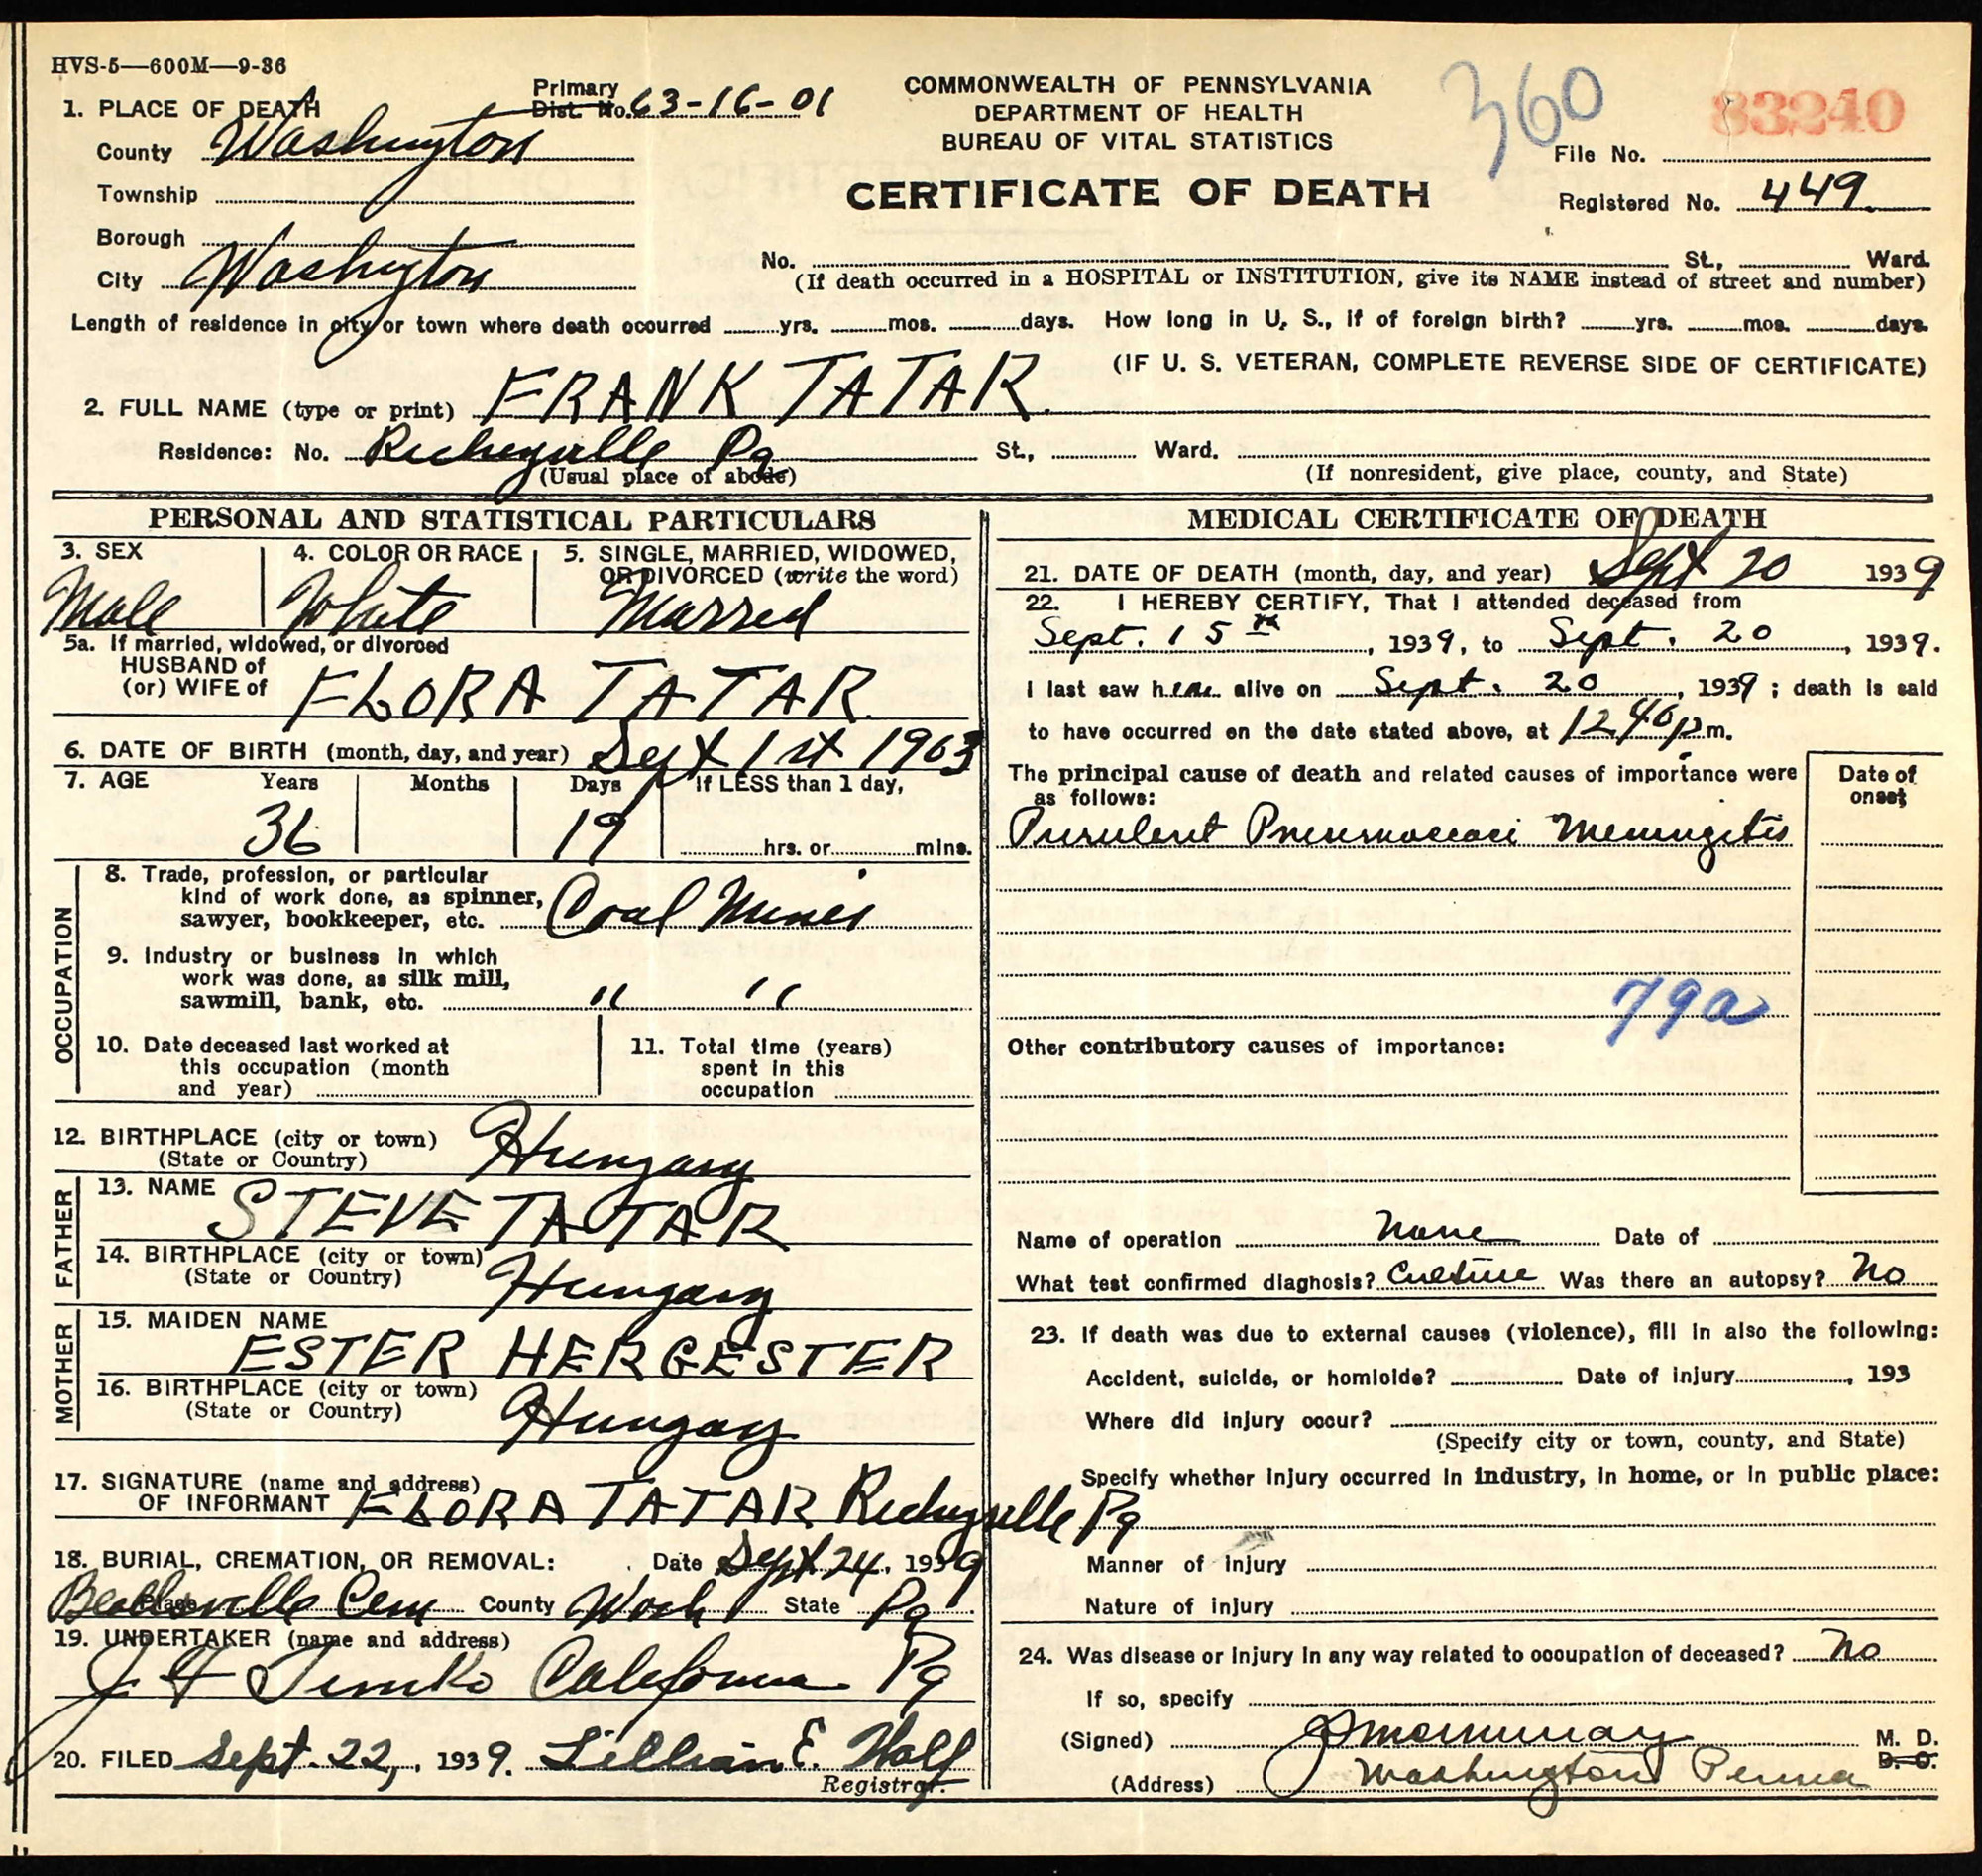 HVS-5—600M—9-36
COMMONWEALTH OF PENNSYLVANIA
DEPARTMENT OF HEALTH
BUREAU OF VITAL STATISTICS
CERTIFICATE OF DEATH
360
83240
File No.
Registered No. 449
1. PLACE OF DEATH
Primary Dist. No. 63-16-01
County Washington
Township
Borough
City Washington
No. St., Ward.
(If death occurred in a HOSPITAL or INSTITUTION, give its NAME instead of street and number)
Length of residence in city or town where death occurred yrs. mos. days. How long in U. S., if of foreign birth? yrs. mos. days.
(IF U. S. VETERAN, COMPLETE REVERSE SIDE OF CERTIFICATE)
2. FULL NAME (type or print) FRANK TATAR.
Residence: No. Richeyville Pa St., Ward.
(Usual place of abode) (If nonresident, give place, county, and State)
PERSONAL AND STATISTICAL PARTICULARS
3. SEX
Male
4. COLOR OR RACE
White
5. SINGLE, MARRIED, WIDOWED,
OR DIVORCED (write the word)
Married
5a. If married, widowed, or divorced
HUSBAND of
(or) WIFE of FLORA TATAR.
6. DATE OF BIRTH (month, day, and year) Sept 1st 1903
7. AGE Years Months Days If LESS than 1 day,
36 19 hrs. or mins.
OCCUPATION
8. Trade, profession, or particular
kind of work done, as spinner,
sawyer, bookkeeper, etc. Coal Miner
9. Industry or business in which
work was done, as silk mill,
sawmill, bank, etc. " "
10. Date deceased last worked at
this occupation (month
and year)
11. Total time (years)
spent in this
occupation
12. BIRTHPLACE (city or town)
(State or Country) Hungary
FATHER
13. NAME STEVE TATAR
14. BIRTHPLACE (city or town)
(State or Country) Hungary
MOTHER
15. MAIDEN NAME
ESTER HERGESTER
16. BIRTHPLACE (city or town)
(State or Country) Hungary
17. SIGNATURE (name and address)
OF INFORMANT FLORA TATAR Richeyville Pa
18. BURIAL, CREMATION, OR REMOVAL: Date Sept 24, 1939
Place Beallsville Cem County Wash State Pa.
19. UNDERTAKER (name and address)
California Pa
20. FILED Sept. 22, 1939. Lillian E.
Registrar.
MEDICAL CERTIFICATE OF DEATH
21. DATE OF DEATH (month, day, and year) Sept 20 1939
22. I HEREBY CERTIFY, That I attended deceased from
Sept. 15th, 1939, to Sept. 20, 1939.
I last saw him alive on Sept. 20, 1939; death is said
to have occurred on the date stated above, at 12 40 p m.
The principal cause of death and related causes of importance were
as follows:
Date of
onset
Purulent Pneumococci Meningitis
79a
Other contributory causes of importance:
Name of operation none Date of
What test confirmed diagnosis? Culture Was there an autopsy? no
23. If death was due to external causes (violence), fill in also the following:
Accident, suicide, or homicide? Date of injury , 193
Where did injury occur?
(Specify city or town, county, and State)
Specify whether injury occurred in industry, in home, or in public place:
Manner of injury
Nature of injury
24. Was disease or injury in any way related to occupation of deceased? no
If so, specify
(Signed) M. D.
D. O.
(Address) Washington Penna